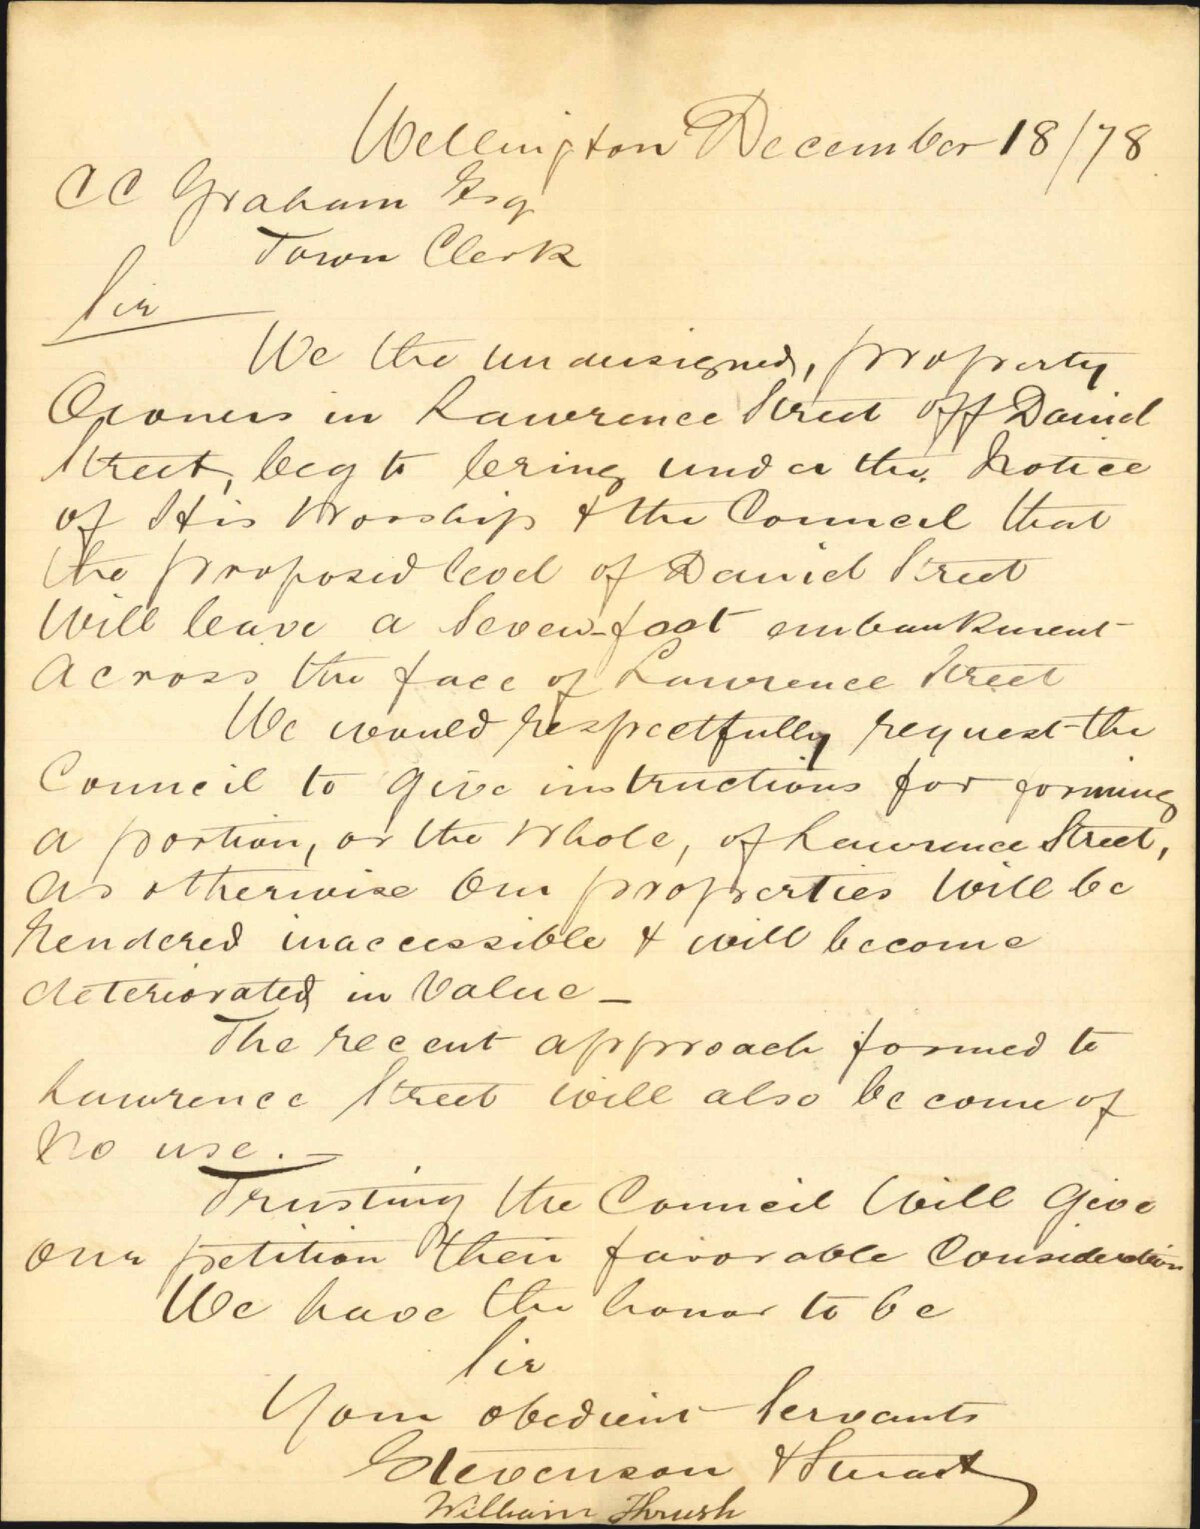 Wellington December 18/78
CC Graham Esq
Town Clerk
Sir
We the undersigned, property
Owners in Lawrence Street off Daniel
Street, beg to bring under the Notice
of His Worship & the Council that
the proposed level of Daniel Street
Will leave a Seven-foot embankment
across the face of Lawrence Street
We would respectfully request the
Council to give instructions for forming
a portion, or the Whole, of Lawrence Street,
as otherwise Our properties Will be
rendered inaccessible & will become
deteriorated in Value -
The recent approach formed to
Lawrence Street will also become of
No use. -
Trusting the Council Will Give
Our petition their favorable Consideration
We have the honor to be
Sir
Your obedient Servants
Stevenson & Stuart
William Thrush